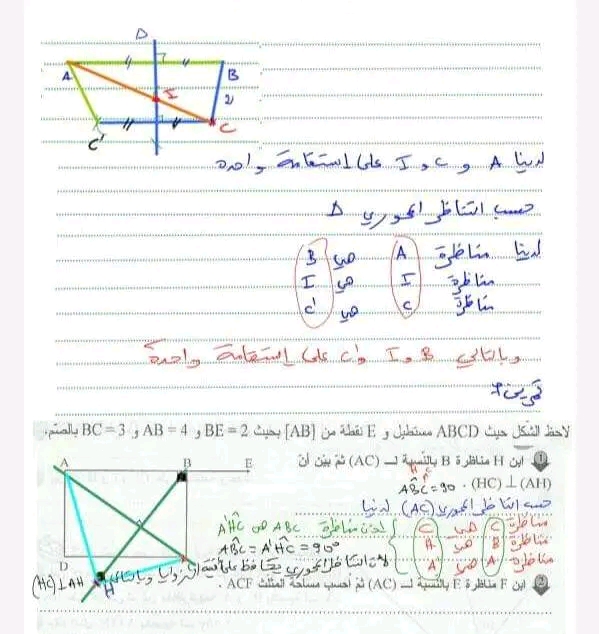 D
A B
I 2
C' C
لدينا A و C و I على إستقامة واحدة
حسب التناظر المحوري Δ
لدينا مناظرة A هي B
مناظرة I هي I
مناظرة C هي C'
وبالتالي B و I و C' على إستقامة واحدة
تمرين 7
لاحظ الشكل حيث ABCD مستطيل و E نقطة من [AB) بحيث BE = 2 و AB = 4 و BC = 3 بالصم.
1 ابن H مناظرة B بالنسبة لـ (AC) ثم بين أن
(HC) ⊥ (AH) . ABC = 90
حسب التناظر المحوري (AC) لدينا
مناظرة C هي C
مناظرة B هي H
مناظرة A هي A
اذن مناظرة ABC هي AHC
ABC = A'HC = 90°
لأن التناظر المحوري يحافظ على أقيسة الزوايا وبالتالي (HC) ⊥ AH
2 ابن F مناظرة E بالنسبة لـ (AC) ثم أحسب مساحة المثلث ACF .
A B E
D H